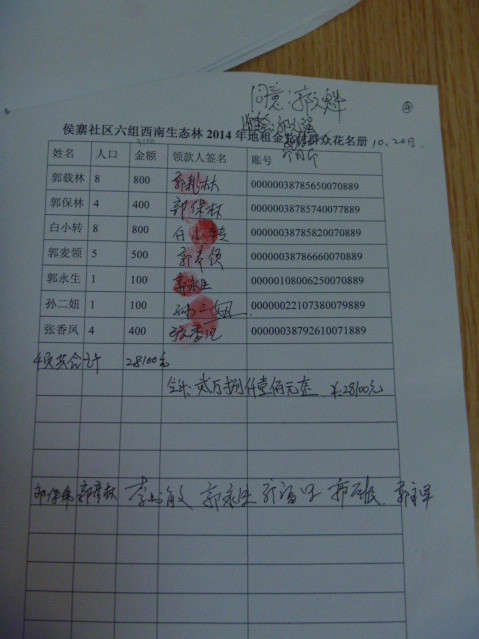 同意:郭文魁
侯寨社区六组西南生态林2014年地租金 群众花名册 10.20日
姓名 人口 金额 领款人签名 账号
郭载林 8 800 郭载林 00000038785650070889
郭保林 4 400 郭保林 00000038785740077889
白小转 8 800 白小转 00000038785820070889
郭麦领 5 500 郭麦领 00000038786660070889
郭永生 1 100 郭永生 00000108006250070889
孙二妞 1 100 孙二妞 00000022107380079889
张香凤 4 400 张香凤 00000038792610071889
4页共合计 28100元
合计:贰万捌仟壹佰元整 ¥:28100元
郭永生